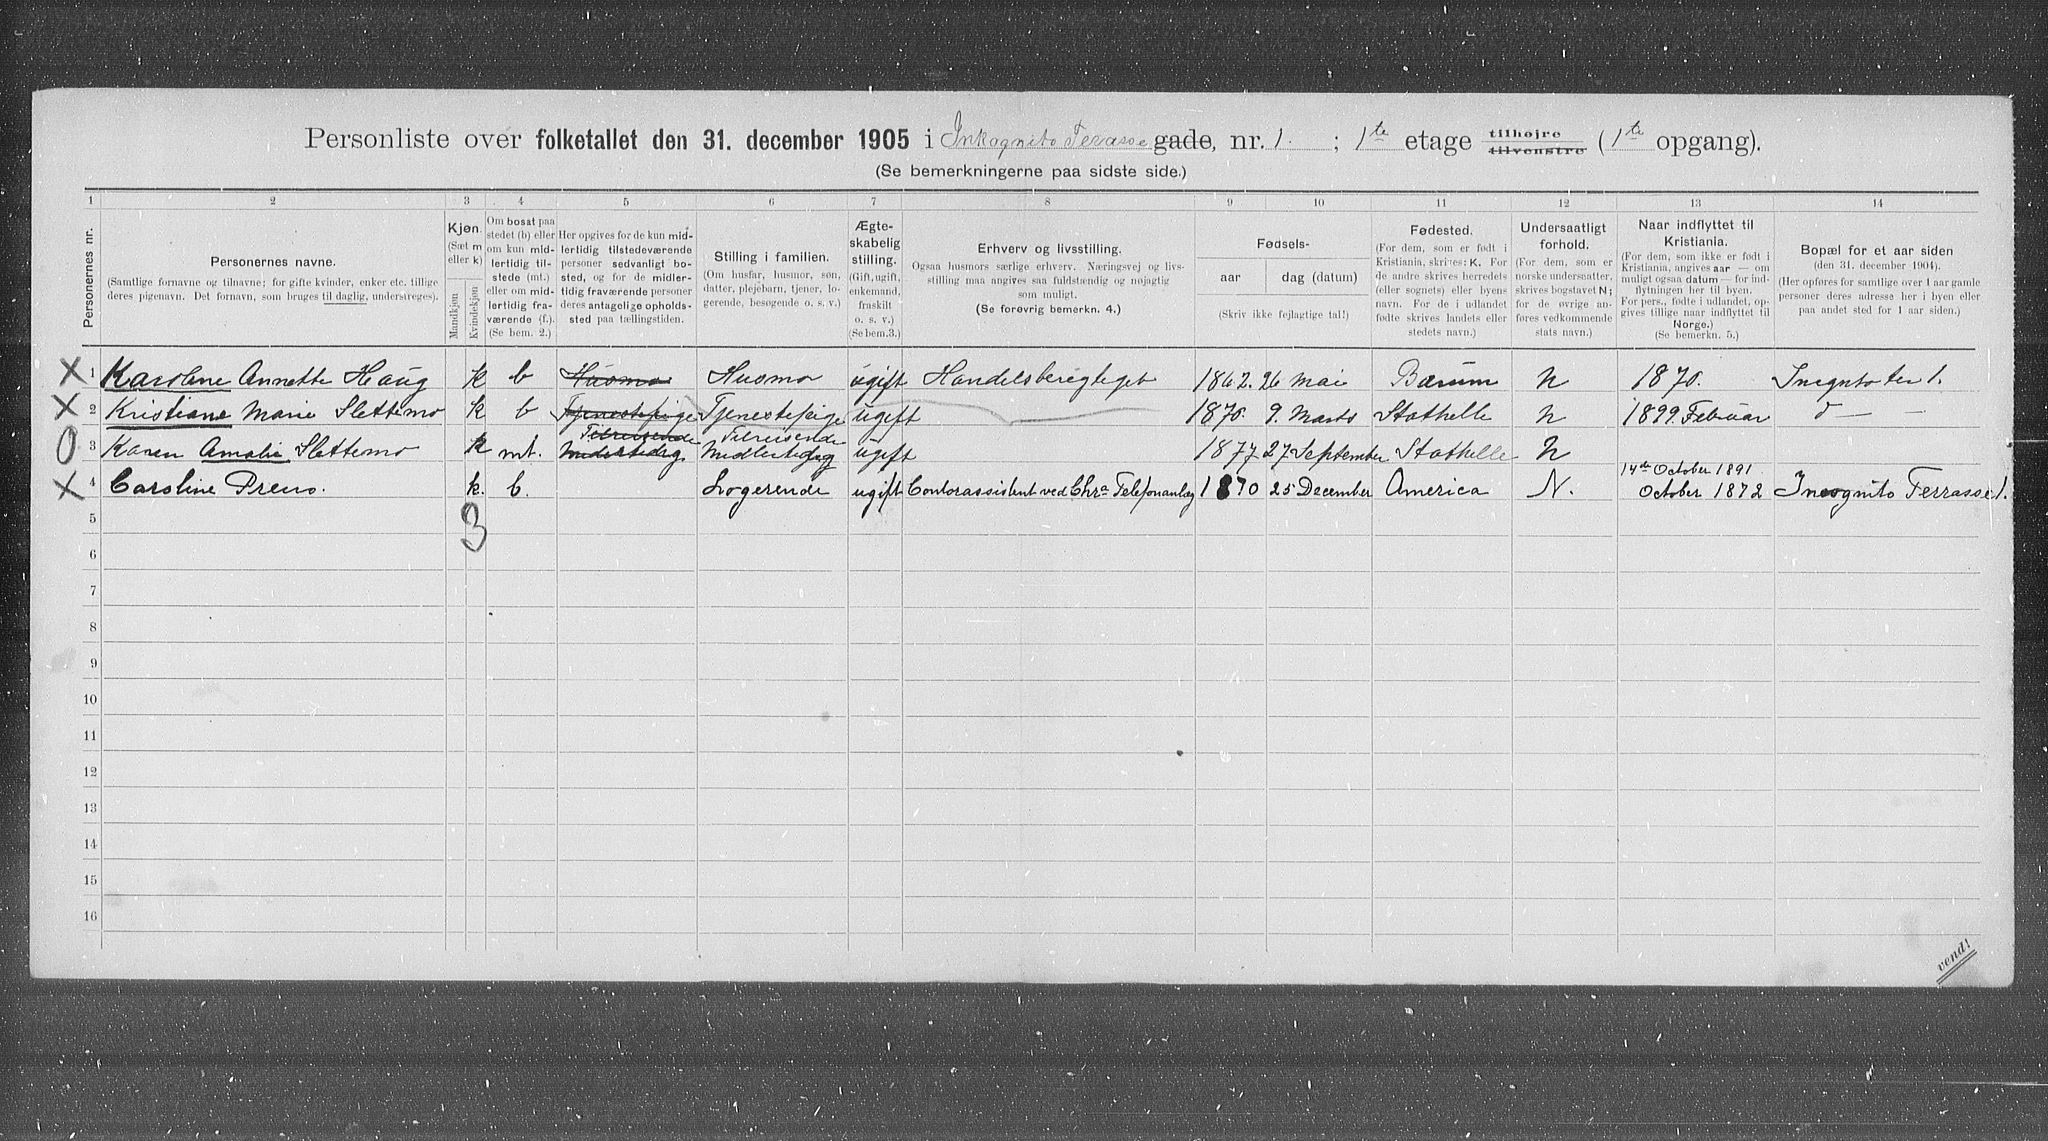 Personliste over folketallet den 31. december 1905 i Inkognito Terasse gade, nr. 1. ; 1te etage tilhøjre tilvenstre (1te opgang).
(Se bemerkningerne paa sidste side.)
1 2 3 4 5 6 7 8 9 10 11 12 13 14
Personernes nr.
Personernes navne.
(Samtlige fornavne og tilnavne; for gifte kvinder, enker etc. tillige
deres pigenavn. Det fornavn, som bruges til daglig, understreges).
Kjøn.
(Sæt m
eller k)
Mandkjøn
Kvindekjøn
Om bosat paa
stedet (b) eller
om kun mid-
lertidig til-
stede (mt.)
eller om mid-
lertidig fra-
værende (f.).
(Se bem. 2.)
Her opgives for de kun mid-
lertidig tilstedeværende
personer sedvanligt bo-
sted, og for de midler-
tidig fraværende personer
deres antagelige opholds-
sted paa tællingstiden.
Stilling i familien.
(Om husfar, husmor, søn,
datter, plejebarn, tjener, lo-
gerende, besøgende o. s. v.)
Ægte-
skabelig
stilling.
(Gift, ugift,
enkemand,
fraskilt
o. s. v.)
(Se bem.3.)
Erhverv og livsstilling.
Ogsaa husmors særlige erhverv. Næringsvej og livs-
stilling maa angives saa fuldstændig og nøjagtig
som muligt.
(Se forøvrig bemerkn. 4.)
Fødsels-
aar dag (datum)
(Skriv ikke fejlagtige tal!)
Fødested.
(For dem, som er født i
Kristiania, skrives: K. For
de andre skrives herredets
(eller sognets) eller byens
navn. For de i udlandet
fødte skrives landets eller
stedets navn.)
Undersaatligt
forhold.
(For dem, som er
norske undersaatter,
skrives bogstavet N;
for de øvrige an-
føres vedkommende
stats navn.)
Naar indflyttet til
Kristiania.
(For dem, som ikke er født i
Kristiania, angives aar — om
muligt ogsaa datum — for ind-
flytningen her til byen.
For pers., fødte i udlandet, op-
gives tillige naar indflyttet til
Norge.)
(Se bemerkn. 5.)
Bopæl for et aar siden
(den 31. december 1904).
(Her opføres for samtlige over 1 aar gamle
personer deres adresse her i byen eller
paa andet sted for 1 aar siden.)
X 1 Karoline Annette Haug k b Husmo Husmo ugift Handelsberegtiget 1862. 26 Mai Bærum N 1870. Incgnito ter 1.
X 2 Kristiane Marie Slettemo k b Tjenestepige Tjenestepige ugift 1870. 9. Marts Stathelle N 1899. Februar d — —
Tilreisende Tilreisende
O 3 Karen Amalie Slettemo k mt. Midlertidig Midlertidig ugift 1877 27 September Stathelle N
14de October 1891
X 4 Caroline k. b. Logerende ugift Contorassistent ved Chra Telefonanlæg 1870 25 December America N. October 1872 Incognito Terrasse 1.
3
5
6
7
8
9
10
11
12
13
14
15
16
vend!